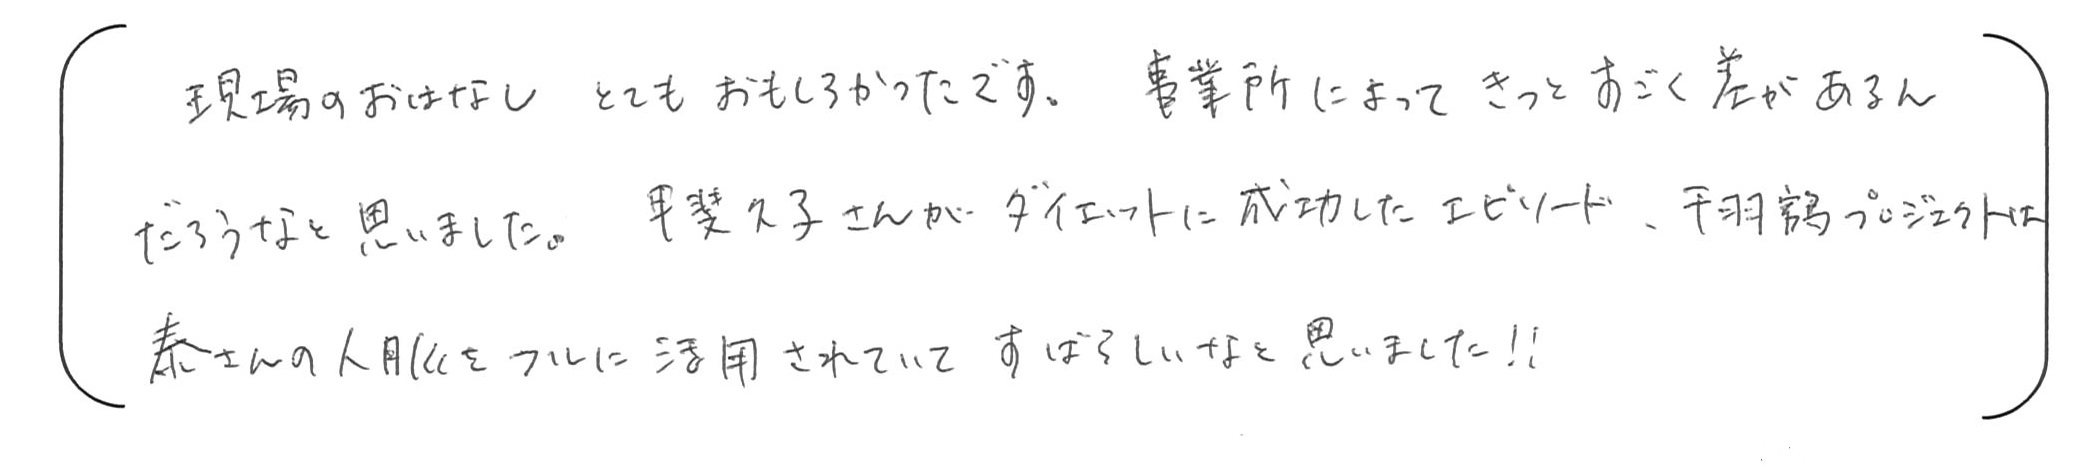 現場のおはなし とても おもしろかったです。 事業所によって きっと すごく 差が あるん
だろうなと 思いました。 甲斐久子さんが ダイエットに 成功した エピソード、千羽鶴プロジェクトは
泰さんの人脈を フルに 活用 されていて すばらしいなと 思いました!!